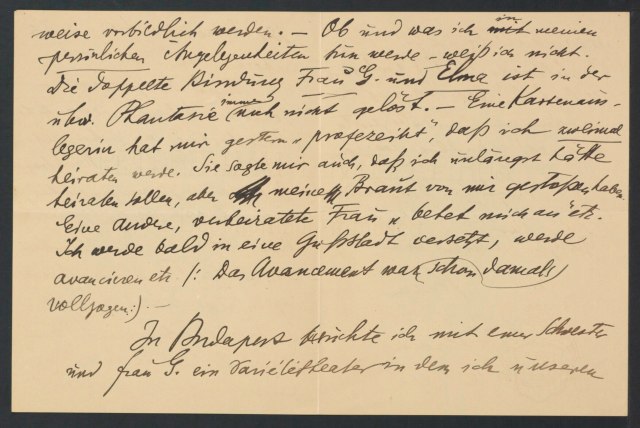 weise vorbildlich werden. — Ob und was ich in meinen
persönlichen Angelegenheiten tun werde – weiß ich nicht.
Die doppelte Bindung Frau G. und Elma ist in der
ubw. Phantasie immer noch nicht gelöst. — Eine Kartenaus-
legerin hat mir gestern „profezeiht", daß ich zweimal
heiraten werde. Sie sagte mir auch, daß ich unlängst hätte
heiraten sollen, aber meine Braut von mir gestoßen habe.
Eine andere, verheiratete Frau „betet mich an" etc.
Ich werde bald in eine Großstadt versetzt, werde
avancieren etc /: Das Avancement war schon damals
vollzogen :/. —
In Budapest besuchte ich mit einer Schwester
und Frau G. ein Varietétheater in dem ich unseren